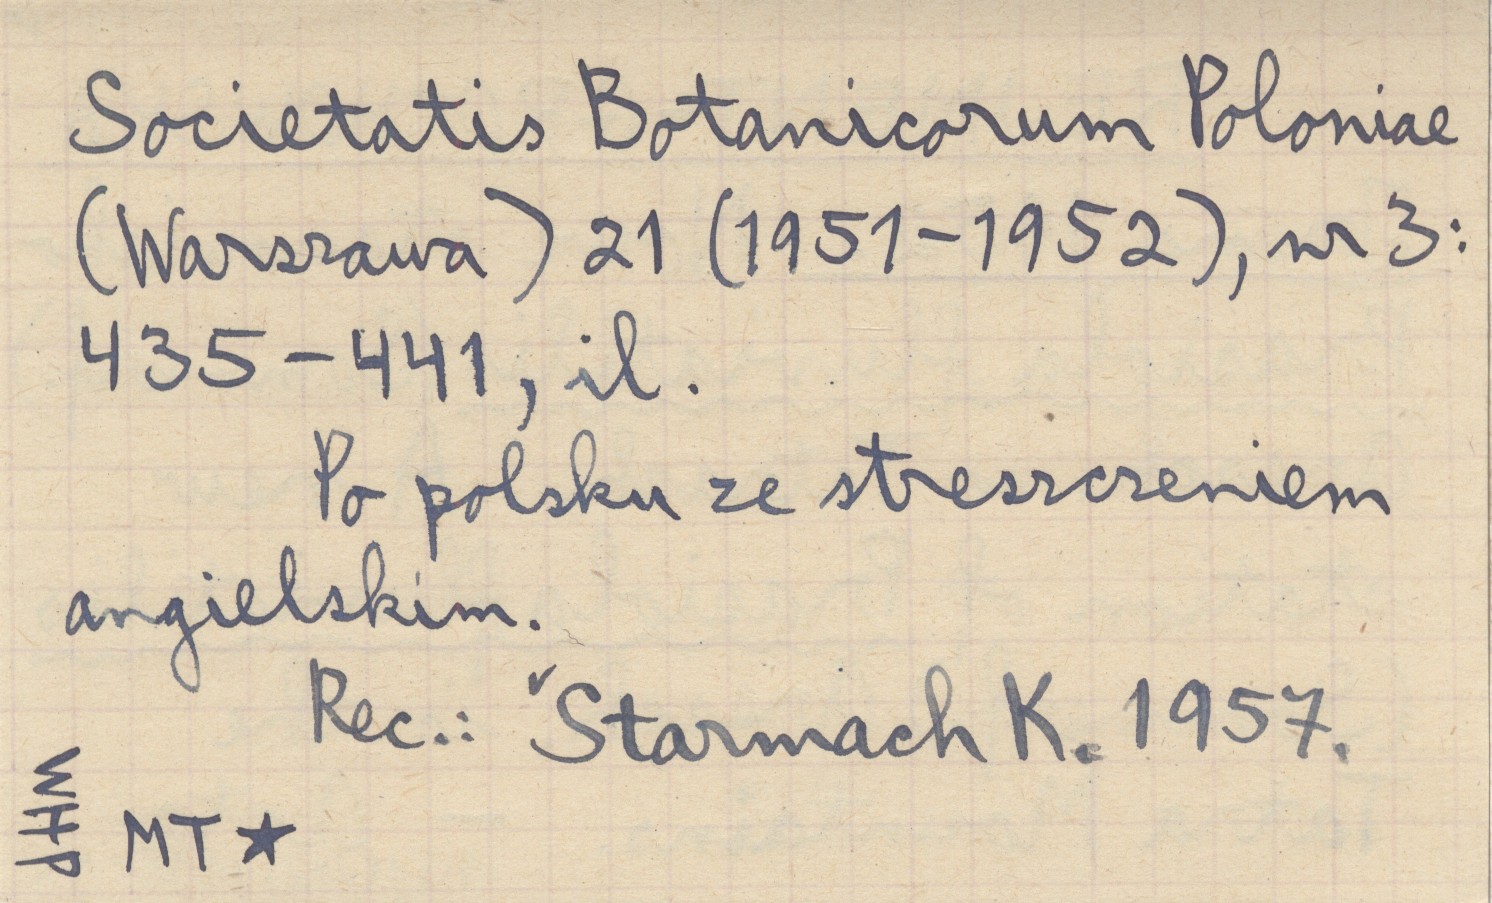 Societatis Botanicorum Poloniae
(Warszawa) 21 (1951-1952), nr 3:
435-441, il.
Po polsku ze streszczeniem
angielskim.
Rec.: ˇStarmach K. 1957.
WHP
MT ★